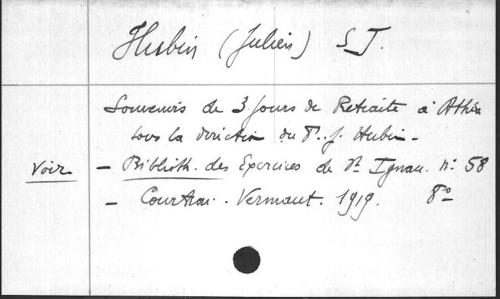 Hubin (Julien) S J.
Souvenirs de 3 jours de Retraite à Athis
sous la direction du P. J. Hubin -
Voir - Biblioth. des Exercices de St Ignace. n° 58
- Courtrai. Vermaut. 1919. 8°